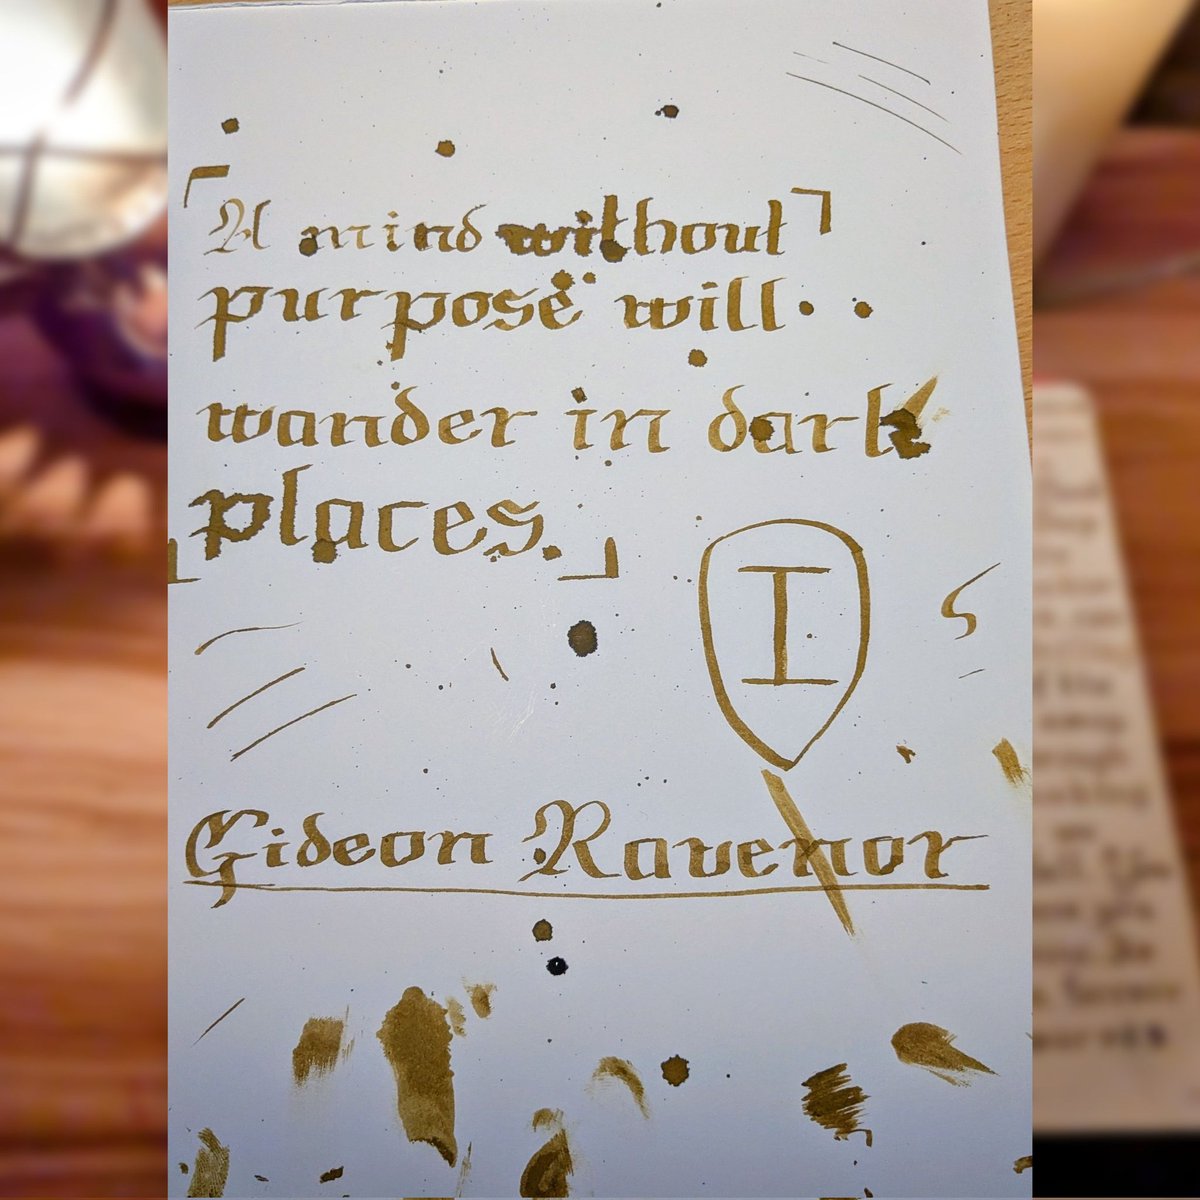 A mind without
purpose will
wander in dark
places.
I
Gideon Ravenor